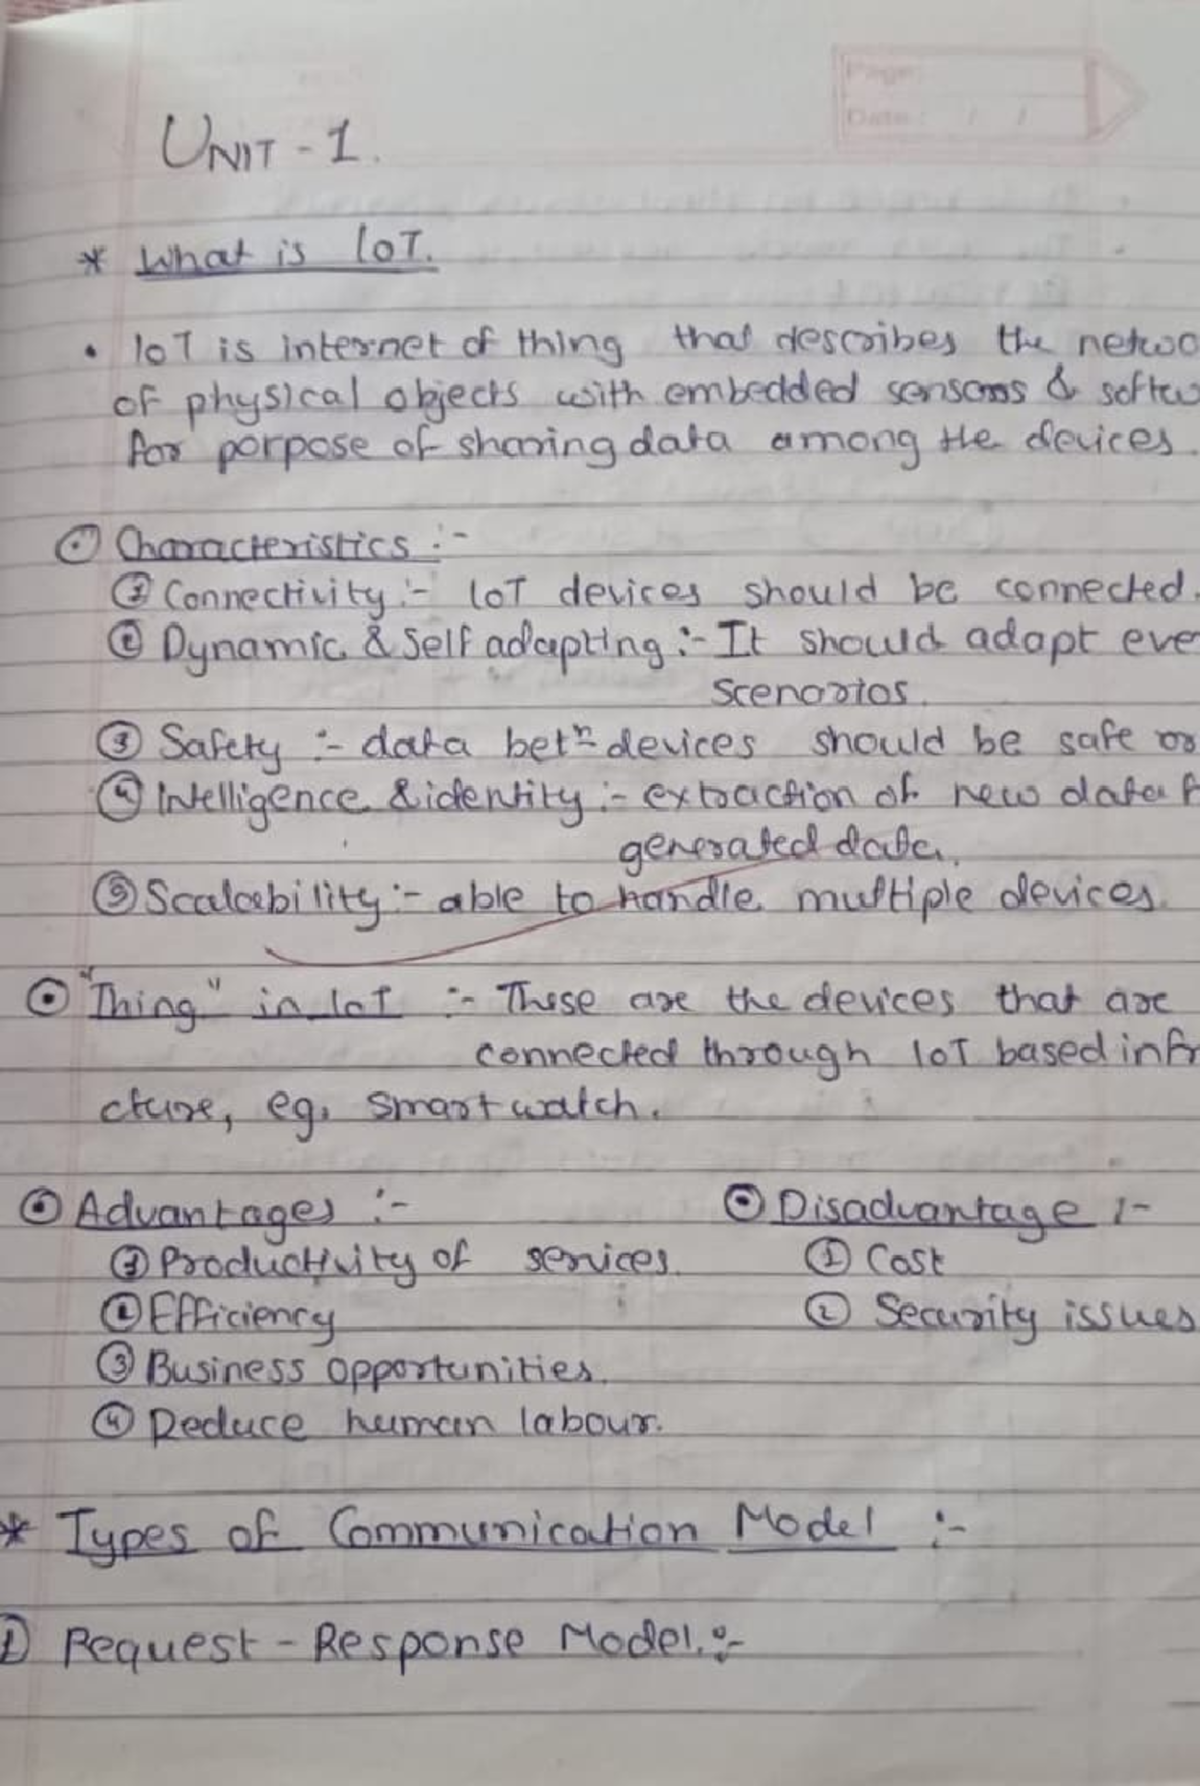 Page:
Date: / /
UNIT - 1.
* What is IoT.
• IoT is internet of thing that describes the netwo
of physical objects with embedded sensors & softw
for porpose of sharing data among the devices.
⊙ Characteristics :-
① Connectivity :- IoT devices should be connected.
② Dynamic & Self adapting :- It should adapt eve
scenarios.
③ Safety :- data betn devices should be safe or
④ Intelligence & identity :- extraction of new data f
generated data.
⑤ Scalability :- able to handle multiple devices.
⊙ "Thing" in IoT :- These are the devices that are
connected through IoT based infr
cture, eg. smart watch.
⊙ Advantages :- ⊙ Disadvantage :-
① Productivity of services. ① Cost
② Efficiency ② Security issues
③ Business opportunities.
④ Reduce human labour.
* Types of Communication Model :-
① Request - Response Model. :-